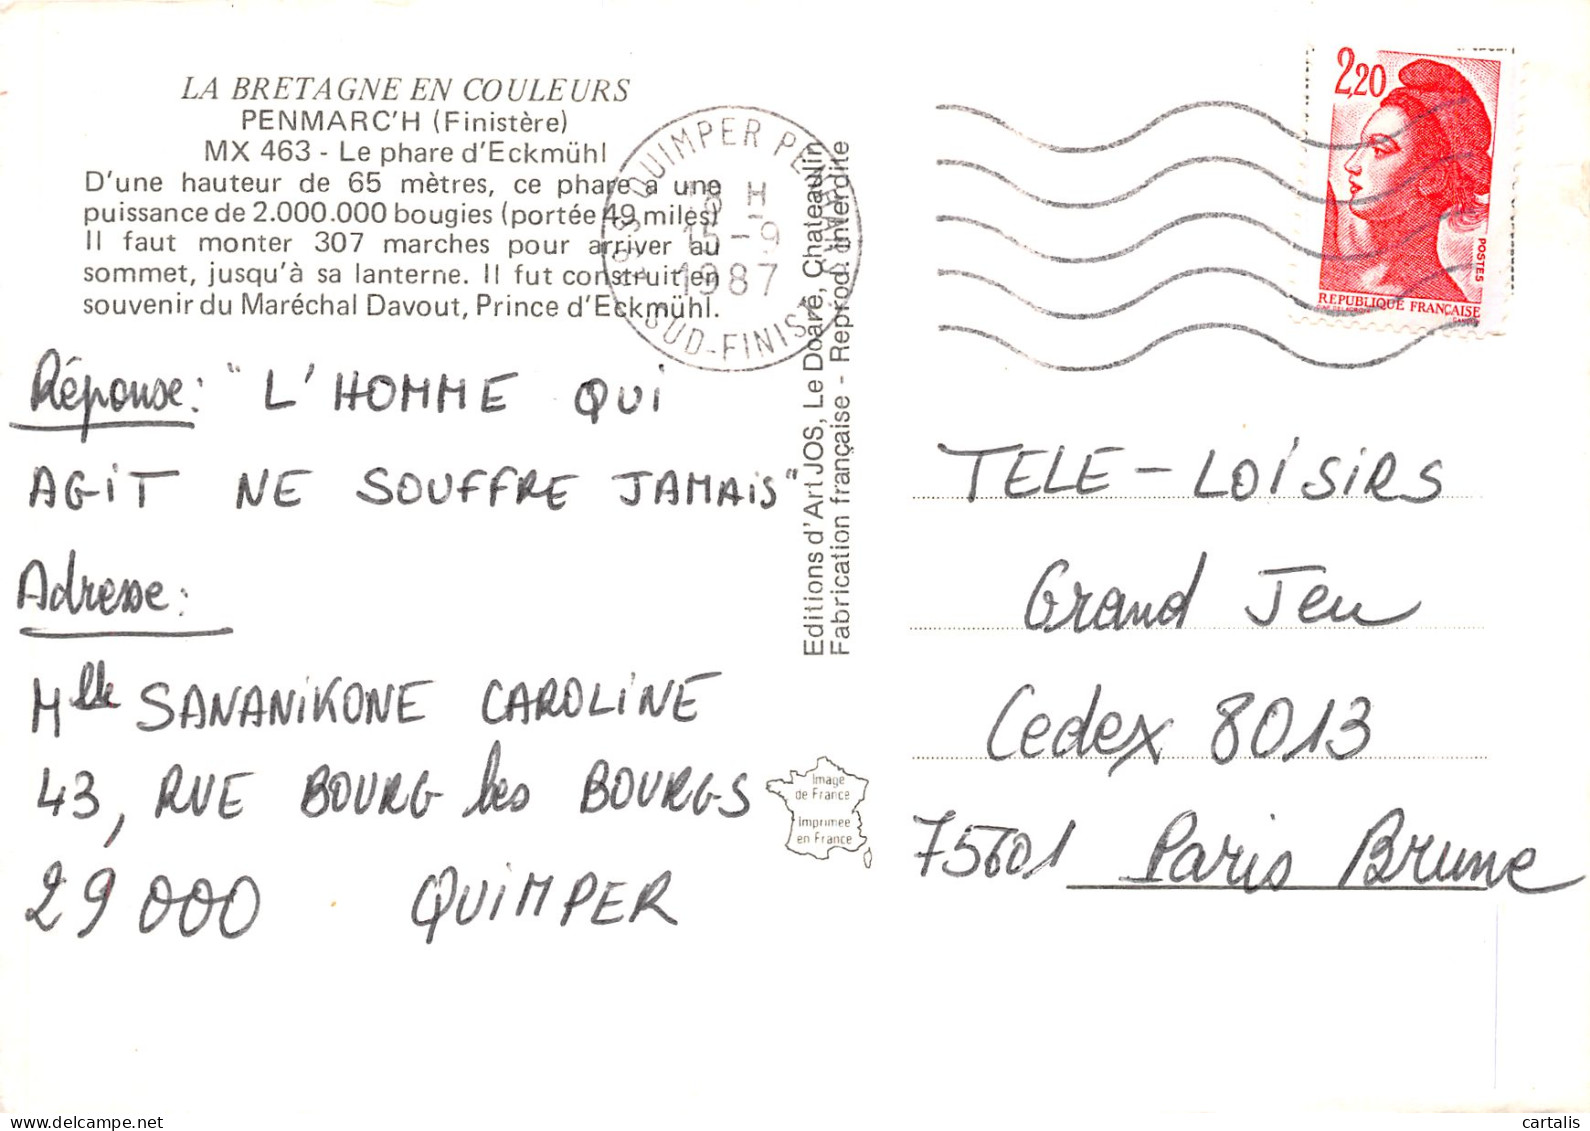 LA BRETAGNE EN COULEURS
PENMARC'H (Finistère)
MX 463 - Le phare d'Eckmühl
D'une hauteur de 65 mètres, ce phare a une
puissance de 2.000.000 bougies (portée 49 miles)
Il faut monter 307 marches pour arriver au
sommet, jusqu'à sa lanterne. Il fut construit en
souvenir du Maréchal Davout, Prince d'Eckmühl.
Réponse: "L'HOMME QUI
AGIT NE SOUFFRE JAMAIS"
Adresse:
Mlle SANANIKONE CAROLINE
43, RUE BOURG les BOURGS
29000 QUIMPER
QUIMPER
H
15-9
1987
SUD-FINIST
Editions d'Art JOS, Le Doaré, Chateaulin
Fabrication française - Reprod. interdite
Image
de France
Imprimée
en France
2,20
POSTES
REPUBLIQUE FRANÇAISE
TELE-LOISIRS
Grand Jeu
Cedex 8013
75601 Paris Brune
delcampe.net
cartalis